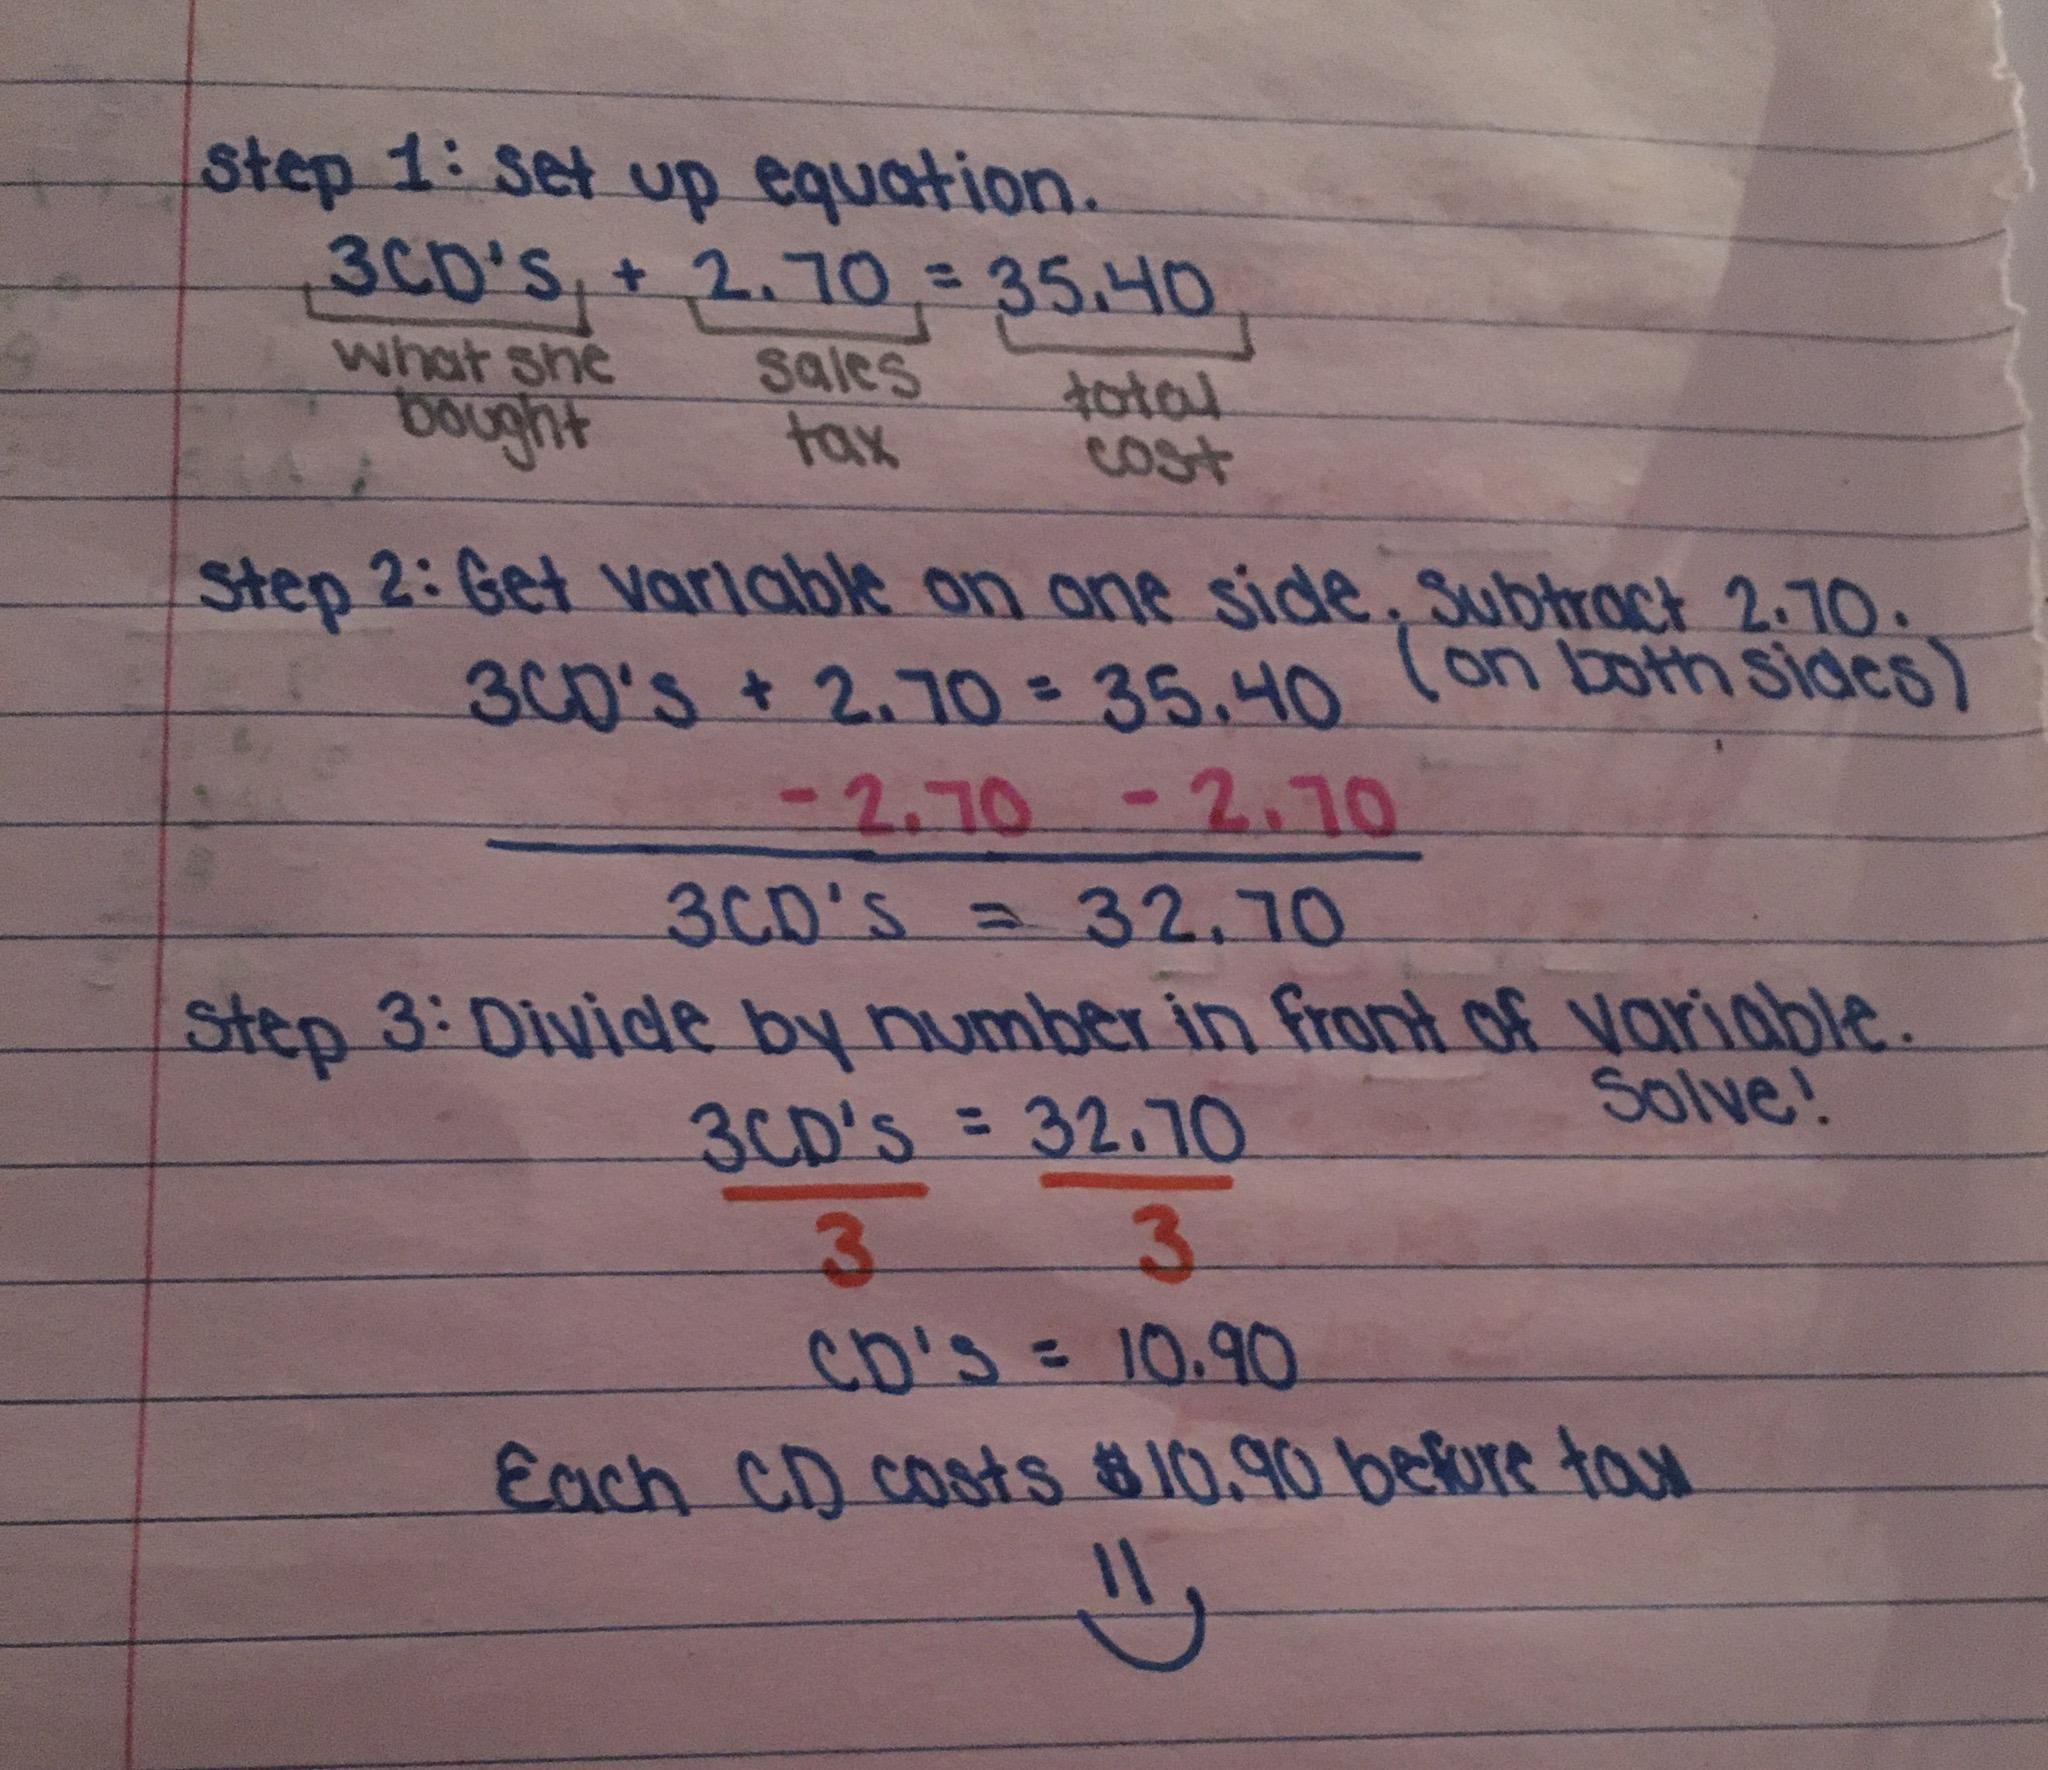 step 1: set up equation.
3CD's + 2.70 = 35.40
what she bought
sales tax
total cost
step 2: Get variable on one side. Subtract 2.70.
(on both sides)
3CD's + 2.70 = 35.40
- 2.70 - 2.70
3CD's = 32.70
step 3: Divide by number in front of variable.
Solve!
3CD's = 32.70
3 3
CD's = 10.90
Each CD costs $10.90 before tax